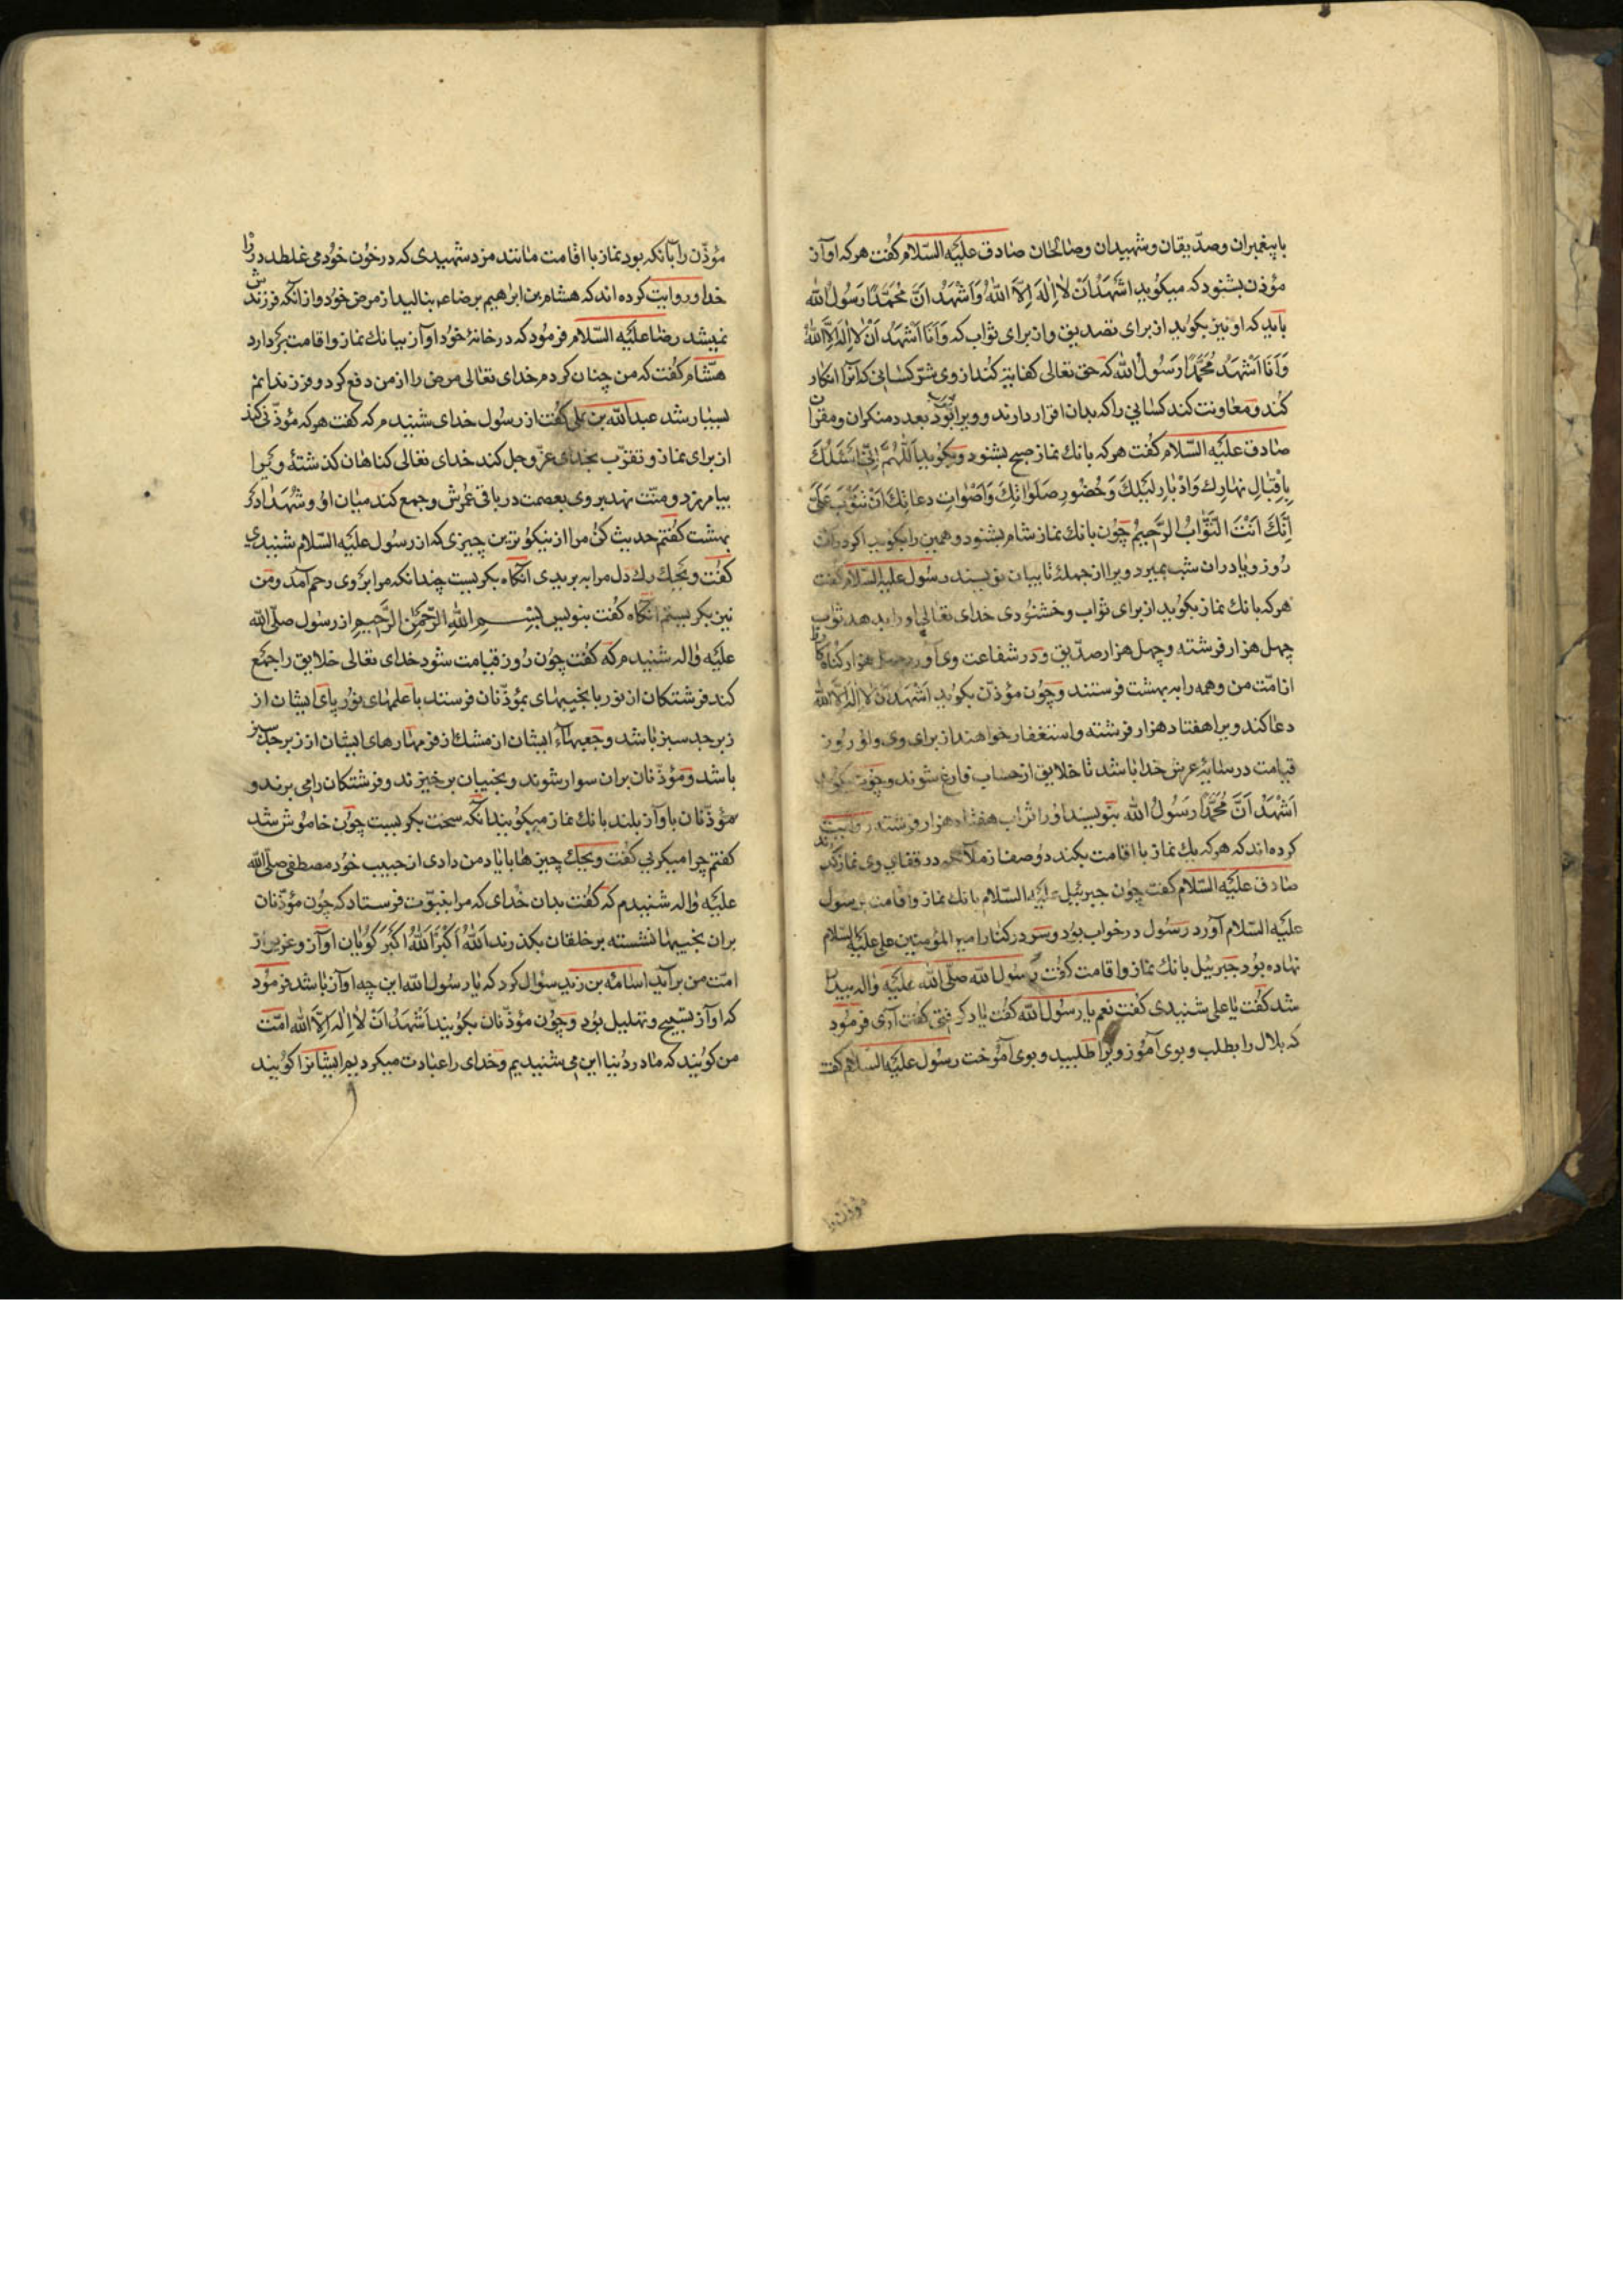 با پیغمبران و صدّیقان و شهیدان و صالحان صادق علیه السّلام کفت هرکه اواز
مؤذن بشنود که میکوید اشهد ان لا اله الا الله و اشهد انّ محمّدا رسول الله
باید که او نیز بکوید از برای تصدیق و از برای ثواب که و انا اشهد ان لا اله الا الله
و انا اشهد محمّدا رسول الله که حق تعالی کفایة کند از وی شرّ کسانی که انرا انکار
کند و معاونت کند کسانی را که بدان اقرار دارند و ویرا بود بعدد منکران و مقران
صادق علیه السّلام کفت هرکه بانك نماز صبح بشنود و بکوید اللّهمّ انّی اسئلك
باقبال نهارك و ادبار لیلك و حضور صلواتك و اصوات دعاتك ان تتوب علیّ
انّك انت التّوّاب الرّحیم چون بانك نماز شام بشنود و همین را بکوید اکر دران
روز و یا دران شب بمیرد ویرا از جملهٔ تایبان نویسند رسول علیه السّلام کفت
هرکه بانك نماز بکوید از برای ثواب و خشنودی خدای تعالی او را بدهد ثواب
چهل هزار فرشته و چهل هزار صدّیق و در شفاعت وی اورد چهل هزار کناه کار را
از امّت من و همه را به بهشت فرستند و چون مؤذّن بکوید اشهد ان لا اله الا الله
دعا کند ویرا هفتاد هزار فرشته و استغفار خواهند از برای وی و او روز
قیامت در سایهٔ عرش خدا باشد تا خلایق از حساب فارغ شوند و چون بکوید
اشهد انّ محمّدا رسول الله بنویسند او را ثواب هفتاد هزار فرشته روایت
کرده اند که هرکه یك نماز با اقامت بکند دو صف از ملائکه در قفای وی نماز کنند
صادق علیه السّلام کفت چون جبرئیل علیه السّلام بانك نماز و اقامت بر رسول
علیه السّلام آورد رسول در خواب بود و سر در کنار امیر المؤمنین علی علیه السّلام
نهاده بود جبرئیل بانك نماز و اقامت کفت رسول الله صلّی الله علیه واله بیدار
شد کفت یا علی شنیدی کفت نعم یا رسول الله کفت یاد کرفتی کفت آری فرمود
که بلال را بطلب و بوی آموز ویرا طلبید و بوی آموخت رسول علیه السّلام کفت
مؤذن را
مؤذّن را بآنکه بود نماز با اقامت مانند مزد شهیدی که در خون خود می غلطد در راه
خدا و روایت کرده اند که هشام بن ابراهیم برضا عم بنالید از مرض خود و از انکه فرزندش
نمیشد رضا علیه السّلام فرمود که در خانهٔ خود اواز ببانك نماز و اقامت بردارد
هشام کفت که من چنان کردم خدای تعالی مرض را از من دفع کرد و فرزندانم
بسیار شد عبدالله بن علی کفت از رسول خدای شنیدم که کفت هرکه مؤذّنی کند
از برای نماز و تقرّب بخدای عزّ و جل کند خدای تعالی کناهان کذشتهٔ ویرا
بیامرزد و منّت نهد بروی بعصمت در باقی عمرش و جمع کند میان او و شهدا در
بهشت کفتم حدیث کن مرا از نیکوترین چیزی که از رسول علیه السّلام شنیدی
کفت ویحك رك دل مرا به بریدی آنکاه بکریست چندانکه مرا بر وی رحم آمد و من
نیز بکریستم انکاه کفت بنویس بسم الله الرّحمن الرّحیم از رسول صلّی الله
علیه واله شنیدم که کفت چون روز قیامت شود خدای تعالی خلایق را جمع
کند فرشتکان از نور با نجیبهای بمؤذّنان فرستند با علمهای نور پای ایشان از
زبرجد سبز باشد و جعبهاء ایشان از مشك از فر مهارهای ایشان از زبرجد سبز
باشد و مؤذّنان بران سوار شوند و بنجیبان برخیزند و فرشتکان را می برند و
مؤذّنان باواز بلند بانك نماز میکویند آنکه سخت بکریست چون خاموش شد
کفتم چرا میکریی کفت ویحك چیزها با یاد من دادی از حبیب خود مصطفی صلّی الله
علیه واله شنیدم که کفت بدان خدای که مرا بنبوّت فرستاد که چون مؤذّنان
بران نجیبها نشسته بر خلقان بکذرند الله اکبر الله اکبر کویان اواز و غریو از
امّت من براید اسامه بن زید سؤال کرد که یا رسول الله این چه اواز باشد فرمود
که اواز تسبیح و تهلیل بود و چون مؤذّنان بکویند اشهد ان لا اله الا الله امّت
من کویند که ما در دنیا این می شنیدیم و خدای را عبادت میکردیم ایشانرا کویند